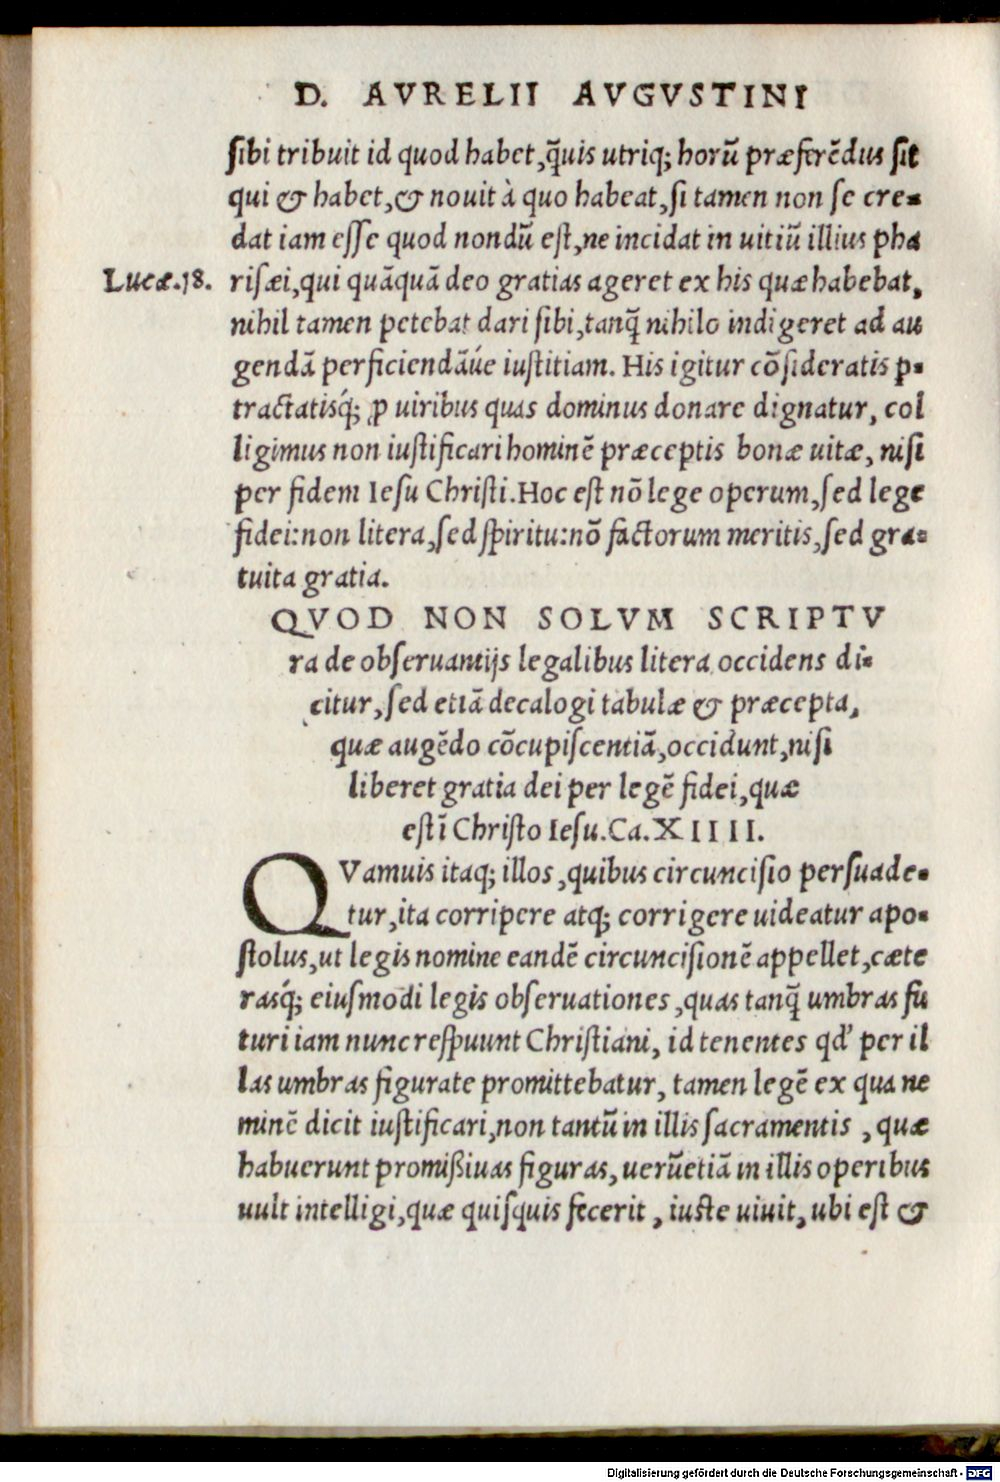 D. AVRELII AVGVSTINI
ſibi tribuit id quod habet, q̃uis utriq; horũ præferẽdus ſit
qui & habet, & nouit à quo habeat, ſi tamen non ſe cre-
dat iam eſſe quod nondũ eſt, ne incidat in uitiũ illius pha
Lucæ.18.
riſæi, qui quãquã deo gratias ageret ex his quæ habebat,
nihil tamen petebat dari ſibi, tanq̃ nihilo indigeret ad au
gendã perficiendãúe iuſtitiam. His igitur cõſideratis p-
tractatisq́; ꝓ uiribus quas dominus donare dignatur, col
ligimus non iuſtificari hominẽ præceptis bonæ uitæ, niſi
per fidem Ieſu Chriſti. Hoc eſt nõ lege operum, ſed lege
fidei: non litera, ſed ſpiritu: nõ factorum meritis, ſed gra-
tuita gratia.
QVOD NON SOLVM SCRIPTV
ra de obſeruantijs legalibus litera occidens di-
citur, ſed etiã decalogi tabulæ & præcepta,
quæ augẽdo cõcupiſcentiã, occidunt, niſi
liberet gratia dei per legẽ fidei, quæ
eſt ĩ Chriſto Ieſu. Ca. XIIII.
QVamuis itaq; illos, quibus circunciſio perſuade-
tur, ita corripere atq; corrigere uideatur apo-
ſtolus, ut legis nomine eandẽ circunciſionẽ appellet, cæte
rasq́; eiuſmodi legis obſeruationes, quas tanq̃ umbras fu
turi iam nunc reſpuunt Chriſtiani, id tenentes qd' per il
las umbras figurate promittebatur, tamen legẽ ex qua ne
minẽ dicit iuſtificari, non tantũ in illis ſacramentis, quæ
habuerunt promißiuas figuras, uerũetiã in illis operibus
uult intelligi, quæ quiſquis fecerit, iuſte uiuit, ubi eſt &
Digitalisierung gefördert durch die Deutsche Forschungsgemeinschaft - DFG